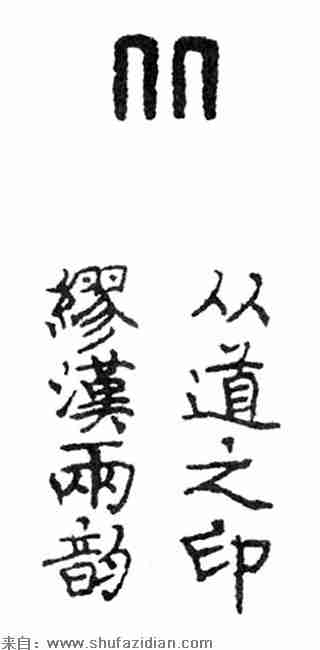 从
从道之印
繆漢兩韵
来自：www.shufazidian.com